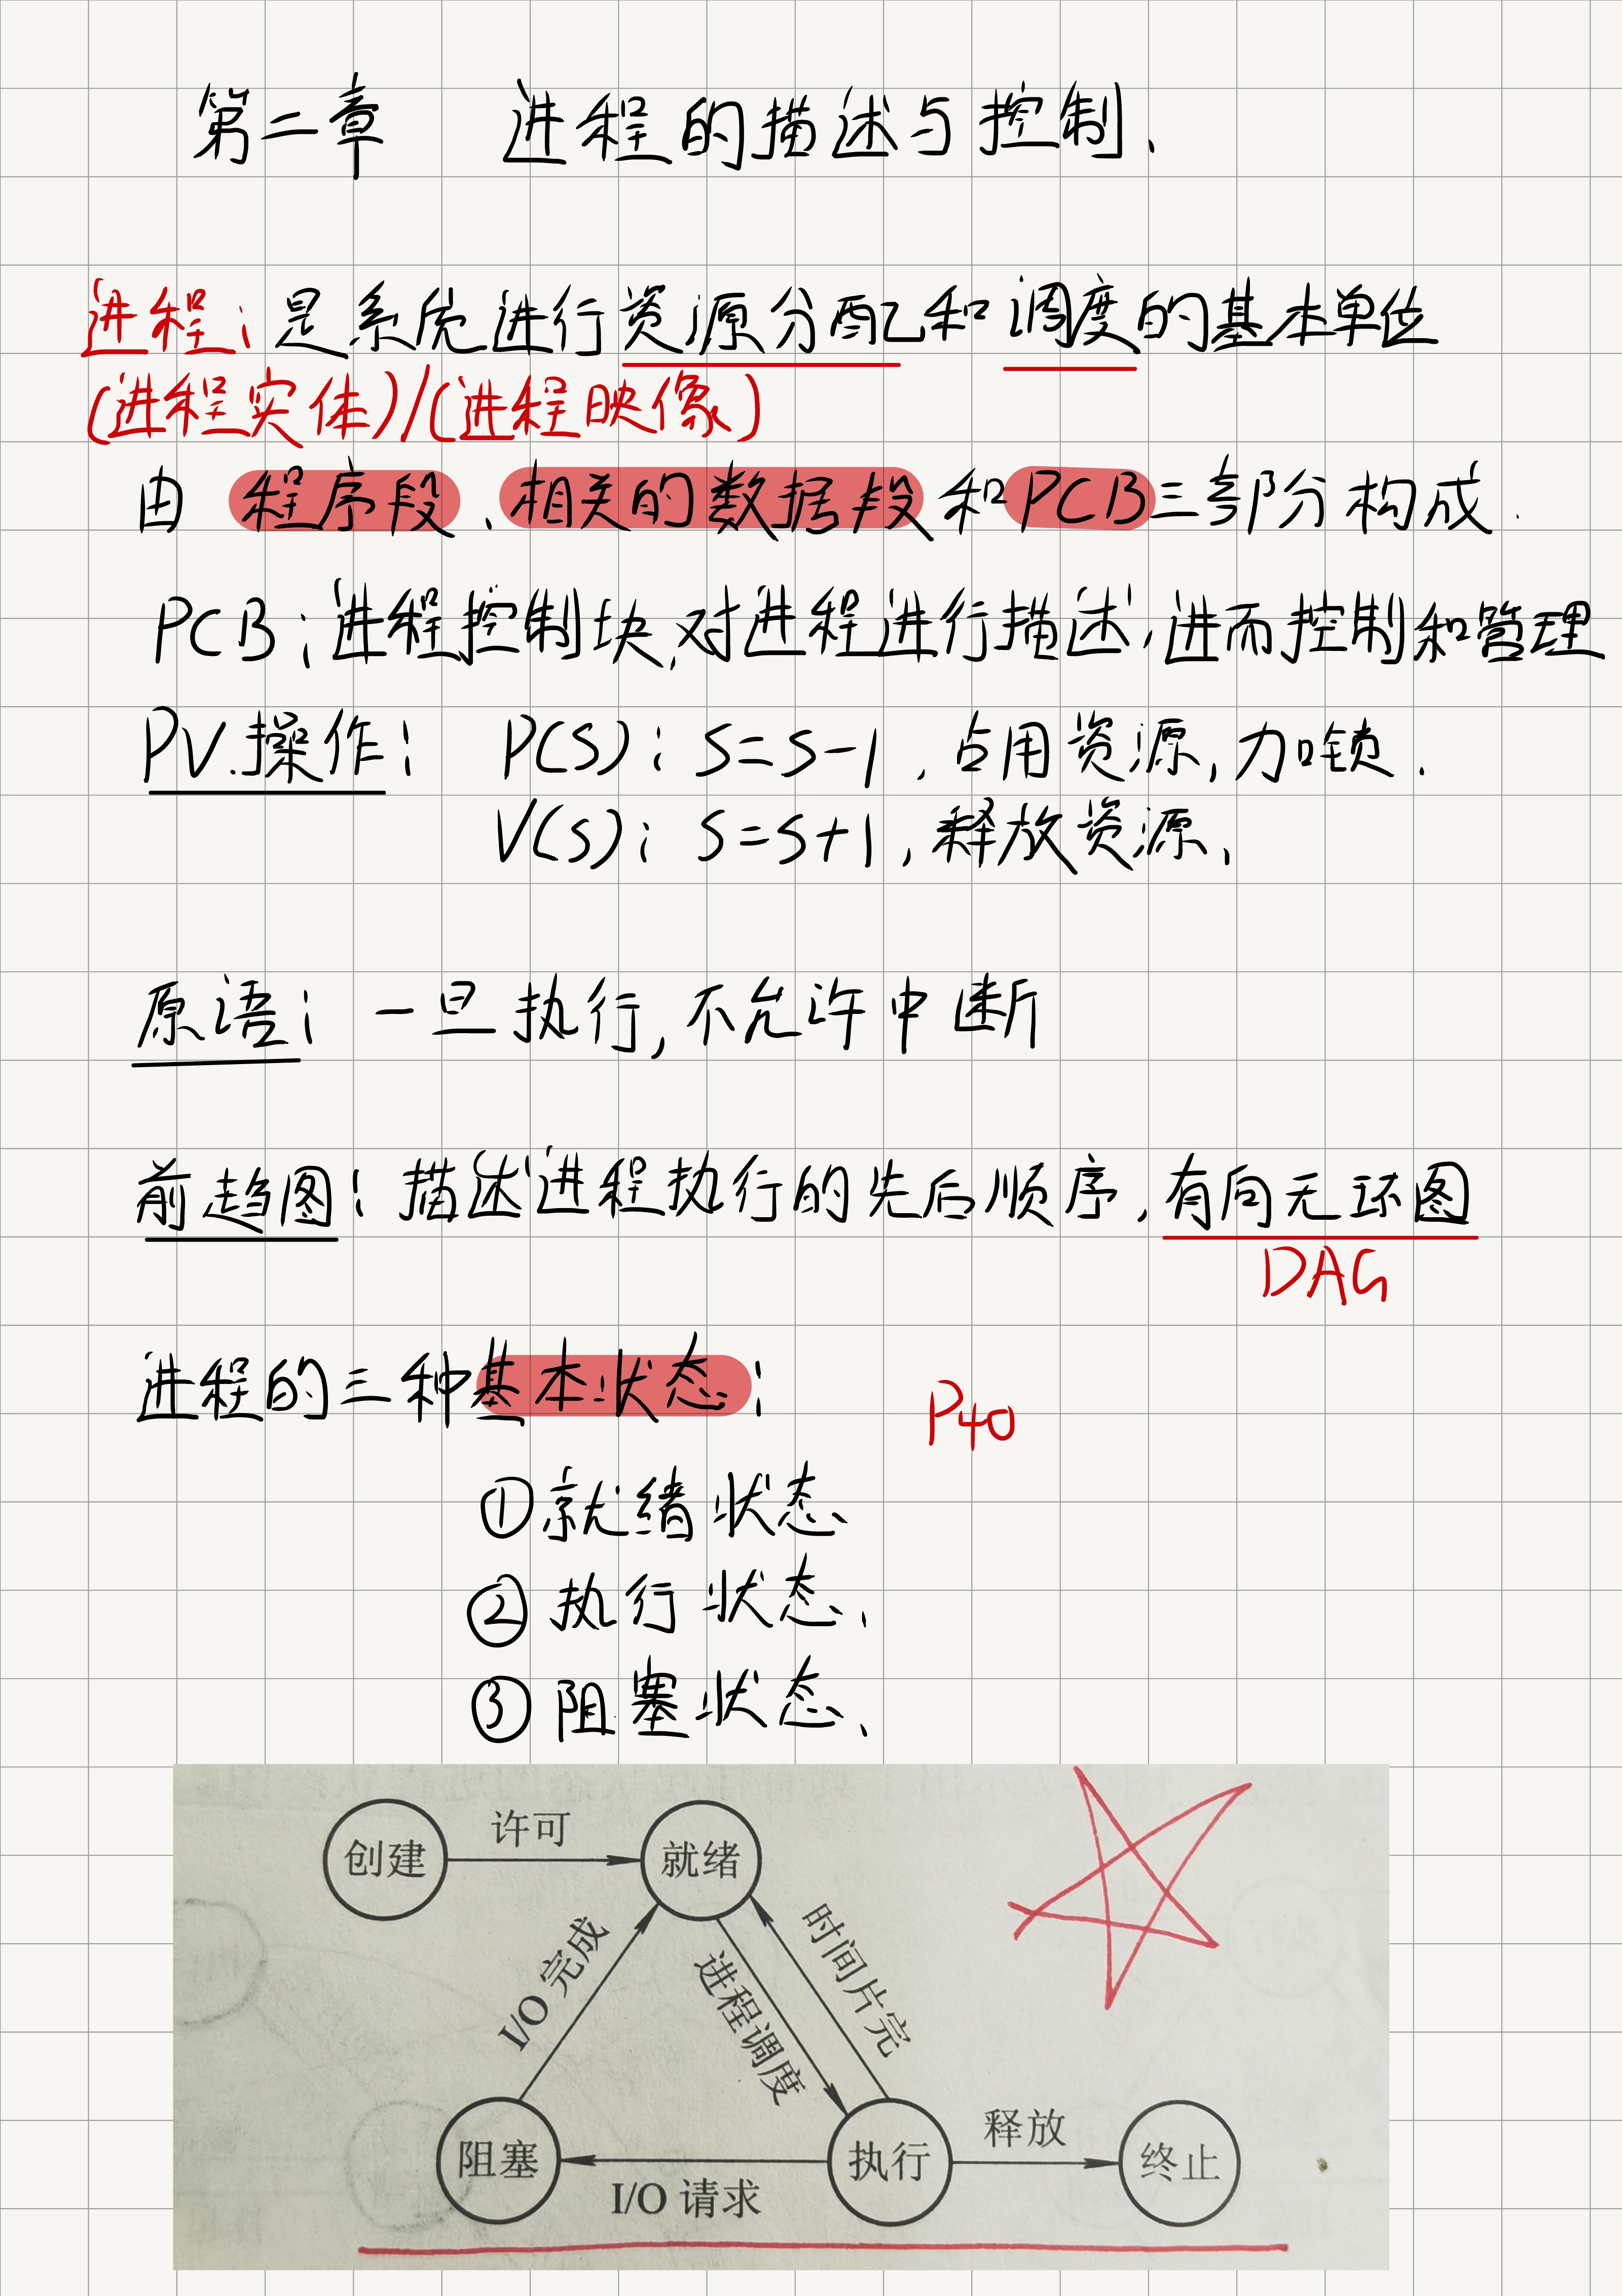 第二章 进程的描述与控制、
进程：是系统进行资源分配和调度的基本单位
(进程实体)/(进程映像)
由程序段、相关的数据段和PCB三部分构成.
PCB：进程控制块,对进程进行描述,进而控制和管理
PV.操作： P(S)：S=S-1,占用资源,加锁.
V(S)：S=S+1,释放资源、
原语：一旦执行,不允许中断
前趋图：描述进程执行的先后顺序,有向无环图
DAG
进程的三种基本状态：
P40
①就绪状态
②执行状态、
③阻塞状态、
创建 许可 就绪
I/O 完成 进程调度 时间片完
阻塞 I/O 请求 执行 释放 终止